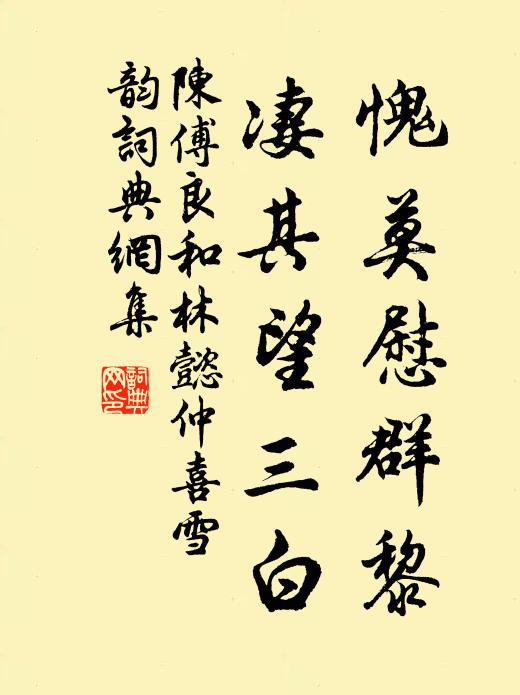 愧莫慰群黎
凄其望三白
陳傅良和林懿仲喜雪
韵詞典網集
詞典网印